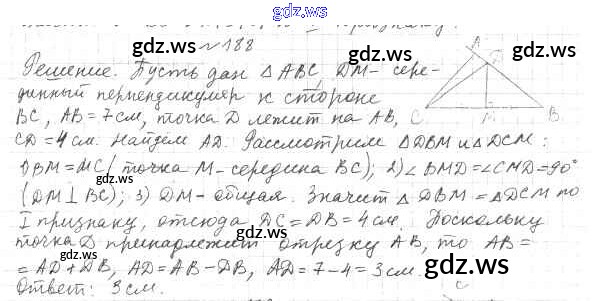 gdz.ws
признаку.
gdz.ws № 188 gdz.ws
Решение. Пусть дан △ ABC, DM - сере-
динный перпендикуляр к стороне
BC, AB = 7 см, точка D лежит на AB,
CD = 4 см. Найдём AD. Рассмотрим △DBM и △DCM:
1) BM = MC (точка M - середина BC); 2) ∠BMD = ∠CMD = 90°
(DM ⊥ BC); 3) DM - общая. Значит △ DBM = △DCM по
I признаку, отсюда DC = DB = 4 см. Поскольку
точка D принадлежит отрезку AB, то AB =
= AD + DB, AD = AB - DB, AD = 7 - 4 = 3 см.
Ответ: 3 см.
A
D
C M B
gdz.ws gdz.ws
gdz.ws gdz.ws
gdz.ws gdz.ws
C